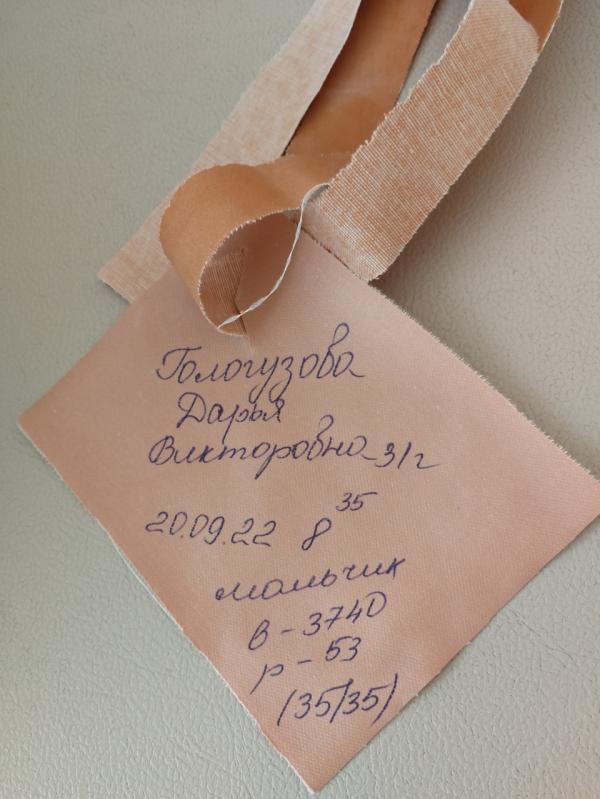 Гологузова
Дарья
Викторовна 31г
20.09.22 8 35
мальчик
в-3740
р-53
(35/35)